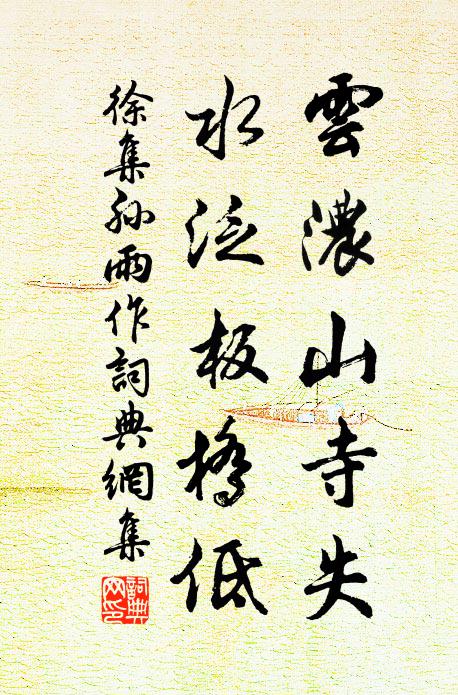 雲濃山寺失
水泛板橋低
徐集孙雨作詞典網集
詞典
网印